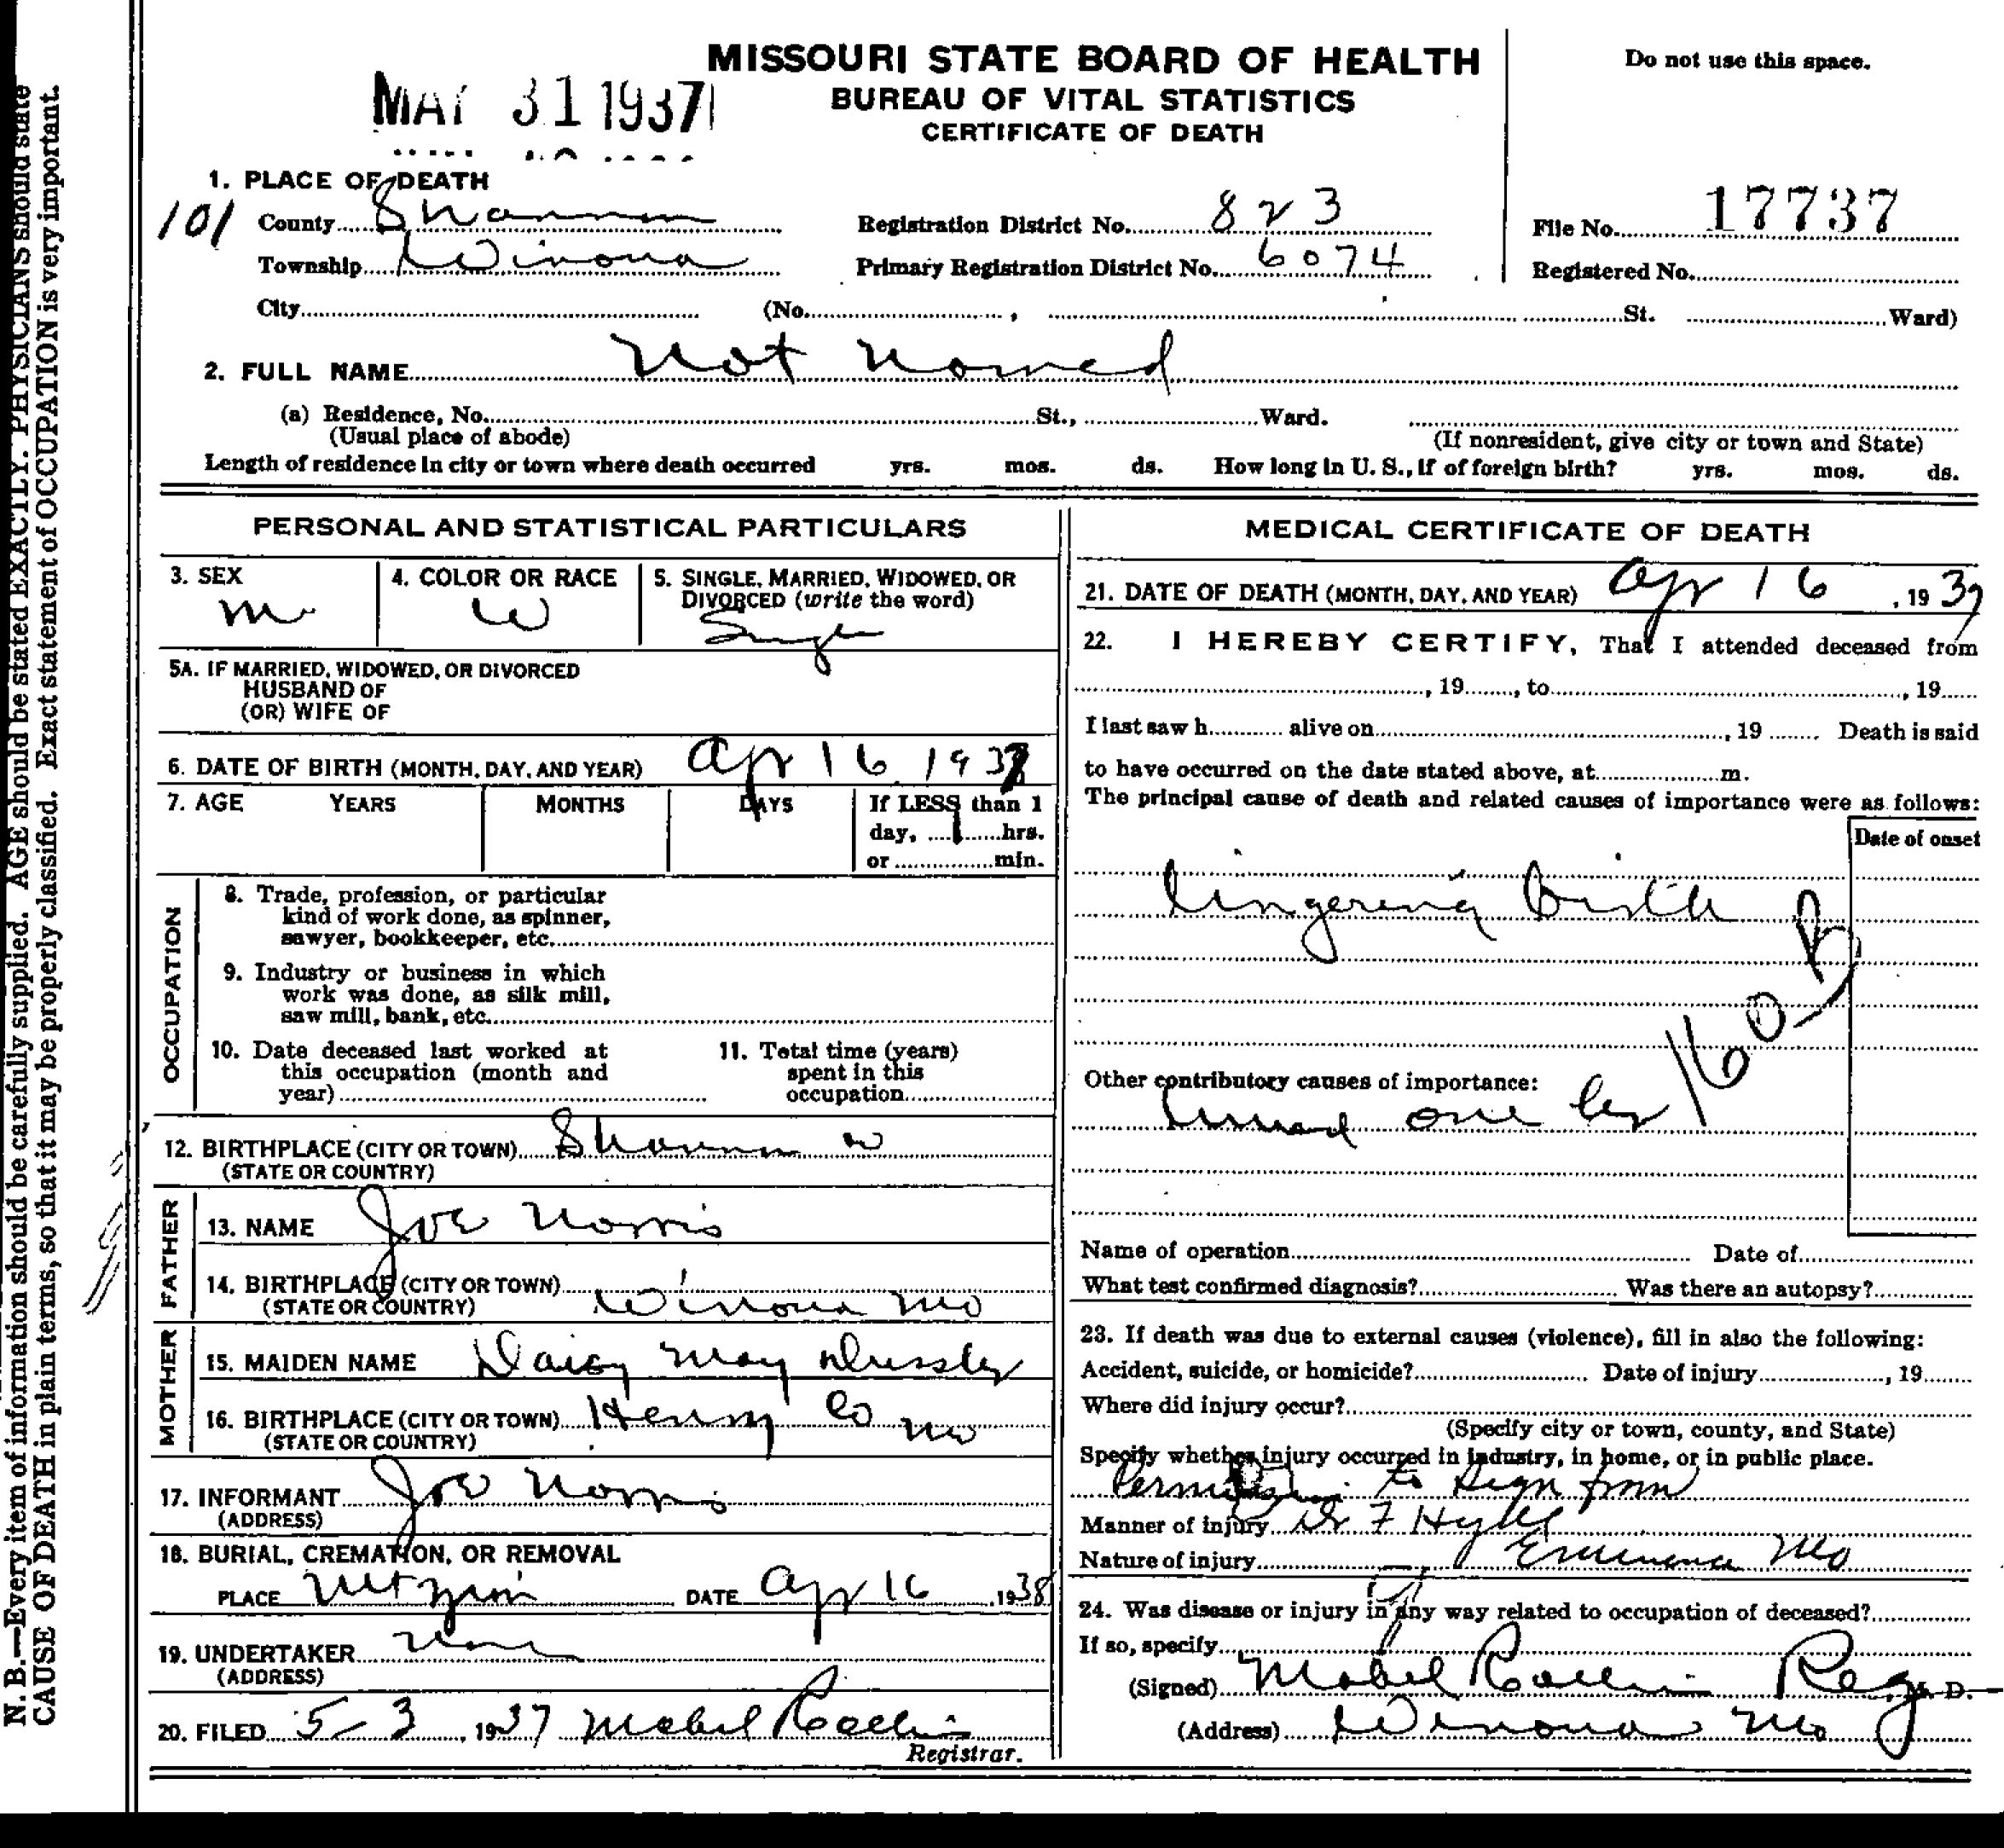 MISSOURI STATE BOARD OF HEALTH
BUREAU OF VITAL STATISTICS
CERTIFICATE OF DEATH
Do not use this space.
MAY 31 1937
1. PLACE OF DEATH
101
County Shannon Registration District No. 823 File No. 17737
Township Winona Primary Registration District No. 6074 Registered No.
City (No. , St. Ward)
2. FULL NAME Not Named
(a) Residence, No. St., Ward.
(Usual place of abode) (If nonresident, give city or town and State)
Length of residence in city or town where death occurred yrs. mos. ds. How long in U. S., if of foreign birth? yrs. mos. ds.
PERSONAL AND STATISTICAL PARTICULARS
3. SEX 4. COLOR OR RACE 5. SINGLE, MARRIED, WIDOWED, OR
DIVORCED (write the word)
M W Single
5A. IF MARRIED, WIDOWED, OR DIVORCED
HUSBAND OF
(OR) WIFE OF
6. DATE OF BIRTH (MONTH, DAY, AND YEAR) Apr 16 1937
7. AGE YEARS MONTHS DAYS If LESS than 1
day, 1 hrs.
or min.
OCCUPATION
8. Trade, profession, or particular
kind of work done, as spinner,
sawyer, bookkeeper, etc.
9. Industry or business in which
work was done, as silk mill,
saw mill, bank, etc.
10. Date deceased last worked at
this occupation (month and
year)
11. Total time (years)
spent in this
occupation
12. BIRTHPLACE (CITY OR TOWN) Shannon
(STATE OR COUNTRY)
FATHER
13. NAME Joe Norris
14. BIRTHPLACE (CITY OR TOWN) Winona Mo
(STATE OR COUNTRY)
MOTHER
15. MAIDEN NAME Daisy May
16. BIRTHPLACE (CITY OR TOWN) Henry Co Mo
(STATE OR COUNTRY)
17. INFORMANT Joe Norris
(ADDRESS)
18. BURIAL, CREMATION, OR REMOVAL
PLACE Mt Zion DATE Apr 16, 1938
19. UNDERTAKER
(ADDRESS)
20. FILED 5-3, 1937 Mabel
Registrar.
MEDICAL CERTIFICATE OF DEATH
21. DATE OF DEATH (MONTH, DAY, AND YEAR) Apr 16, 1937
22. I HEREBY CERTIFY, That I attended deceased from
, 19 , to , 19
I last saw h alive on , 19 Death is said
to have occurred on the date stated above, at m.
The principal cause of death and related causes of importance were as follows:
Date of onset
Lingering birth
160-B
Other contributory causes of importance:
one
Name of operation Date of
What test confirmed diagnosis? Was there an autopsy?
23. If death was due to external causes (violence), fill in also the following:
Accident, suicide, or homicide? Date of injury , 19
Where did injury occur?
(Specify city or town, county, and State)
Specify whether injury occurred in industry, in home, or in public place.
Permission to sign from
Manner of injury Dr F Hyde
Nature of injury Eminence Mo
24. Was disease or injury in any way related to occupation of deceased?
If so, specify
(Signed) Mabel Reg M. D.
(Address) Winona Mo
N. B.—Every item of information should be carefully supplied. AGE should be stated EXACTLY. PHYSICIANS should state
CAUSE OF DEATH in plain terms, so that it may be properly classified. Exact statement of OCCUPATION is very important.